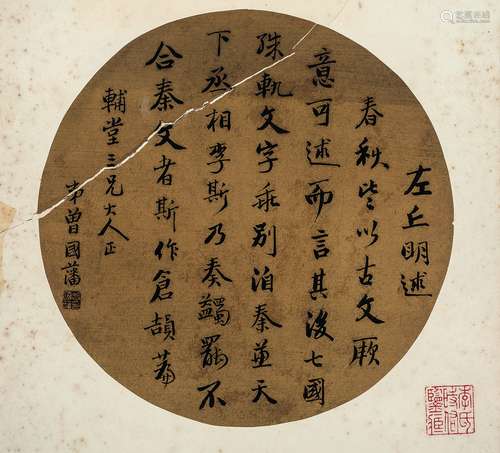 左丘明述
春秋皆以古文厥
意可述而言其後七國
殊軌文字乖別洎秦並天
下丞相李斯乃奏蠲罷不
合秦文者斯作倉頡篇
輔堂三兄大人正
弟曾國藩